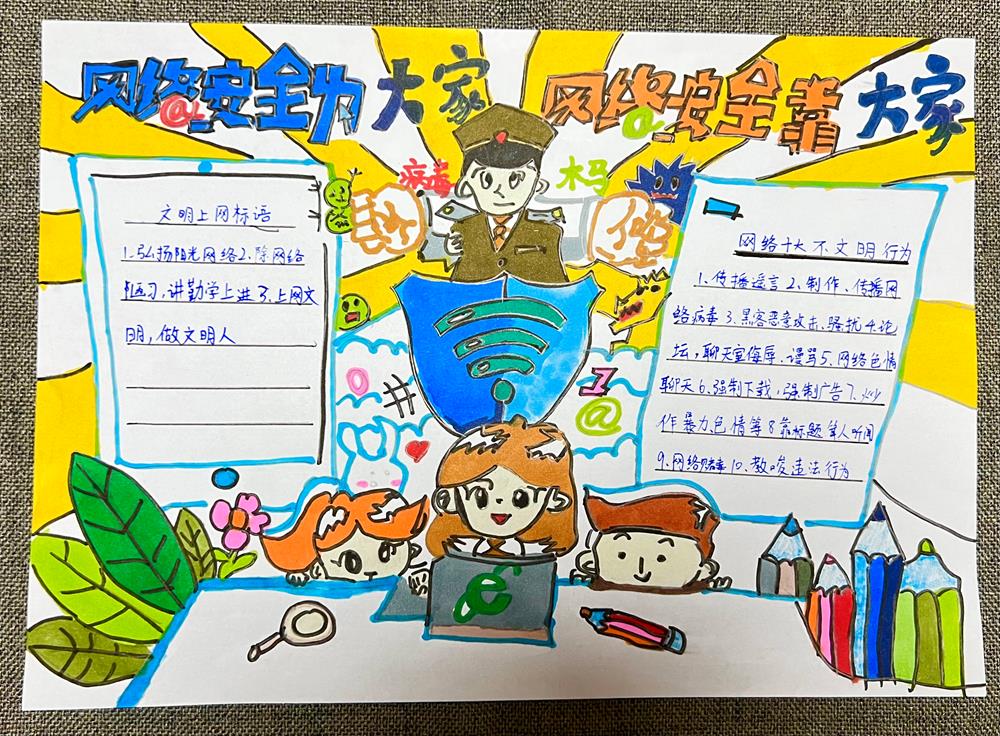 网络安全为大家 网络安全靠大家
病毒 木马
文明上网标语
1.弘扬阳光网络2、除网络
陋习,讲勤学上进3.上网文
明,做文明人
网络十大不文明行为
1.传播谣言2.制作、传播网
络病毒3.黑客恶意攻击、骚扰4.论
坛,聊天室侮辱、谩骂5、网络色情
聊天6.强制下载,强制广告7.炒
作暴力色情等8靠标题耸人听闻
9.网络赌毒10.教唆违法行为
#
1
@
e